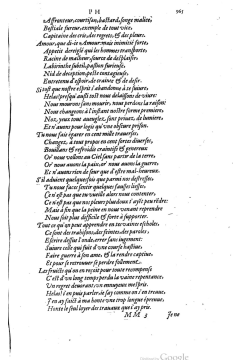 PH 965
Affronteur, courtisan, bastard, songe malice,
Bestiale fureur, exemple de tout vice:
Capitaine des cris, des regrets, & des pleurs.
Amour, que di-ie Amour? mais inimitié forte,
Appetit dereiglé qui les hommes transporte:
Racine de malheur, source de desplaisir:
Labirinthe subtil, passion furieuse,
Nid de deception, peste contagieuse,
Entretenu d'espoir, de crainte & de desir.
Si tost que nostre esprit s'abandonne à te suiure,
Helas! presque aussi tost nous delaissons de viure:
Nous mourons sans mourir, nous perdons la raison:
Nous changeons à l'instant nostre forme premiere,
Noz yeux tout aueuglez, sont priuez, de lumiere,
Et n'auons pour logis qu'vne obscure prison.
Tu nous fais égarer en cent mille trauerses,
Changez, à tous propos en cent sortes diuerses,
Bouillans & refroidis craintifs & genereux:
Or' nous vollons au Ciel sans partir de la terre,
Or' nous auons la paix, or' nous auons la guerre,
Et n'auons rien de seur que d'estre mal-heureux.
S'il aduient quelquesfois que parmi nos destresses
Tu nous faces sentir quelques fausses liesses,
Ce n'est pas que tu vueilles alors nous contenter:
Ce n'est pas que nos pleurs piteux t'ayt peu distraire:
Mais à fin que la peine en nous venant reprendre
Nous soit plus difficile & forte à supporter.
Tout ce qu'on peut apprendre en tes vaines escholes,
Ce sont des trahisons, des feintes, des paroles,
Escrire dessus l'onde, errer sans iugement:
Suiure celle qui fuit d'vne course hastiue:
Faire guerre à son ame, & la rendre captiue,
Et pour se retrouuer se perdre follement.
Les fruicts qu'on en reçoit pour toute recompense
C'est d'vn long temps perdu la vaine repentance,
Vn regret deuorant, vn ennuyeux mespris.
Helas! i'en puis parler, ie say comme on s'en treuue,
I'en ay faict à ma honte vne trop longue épreuue,
Honte le seul loyer des trauaux que i'ay pris.
MM 3 Ie ne
Google